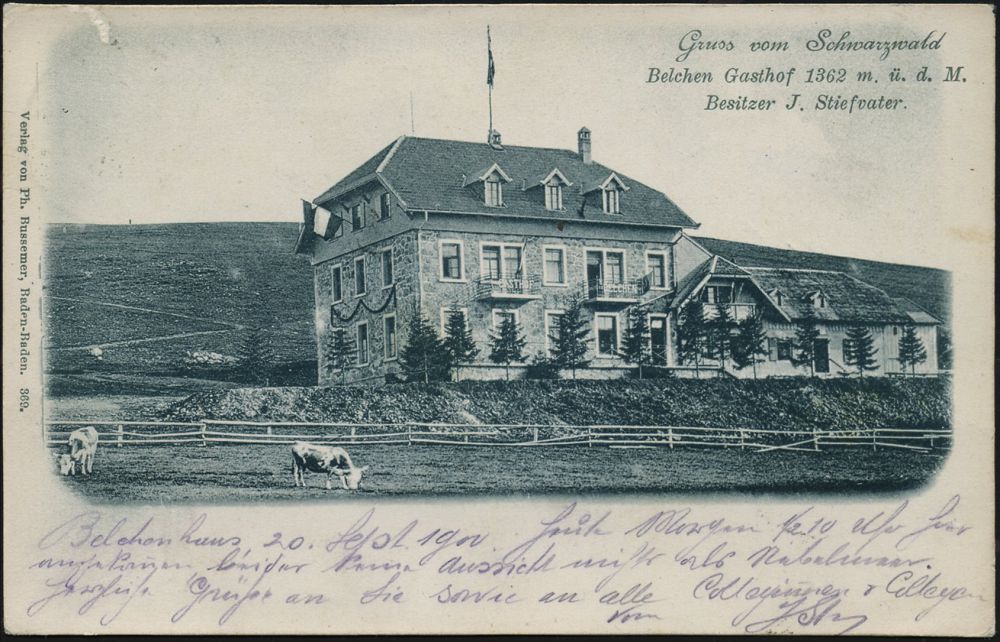 Gruss vom Schwarzwald
Belchen Gasthof 1362 m. ü. d. M.
Besitzer J. Stiefvater.
Verlag von Ph. Bussemer, Baden-Baden. 369.
Belchenhaus 20. Sept 1900 Heute Morgen ½10 Uhr hier
leider keine Aussicht nichts als Nebelmeer.
Herzliche Grüße an Sie sowie an alle Collegen
vom